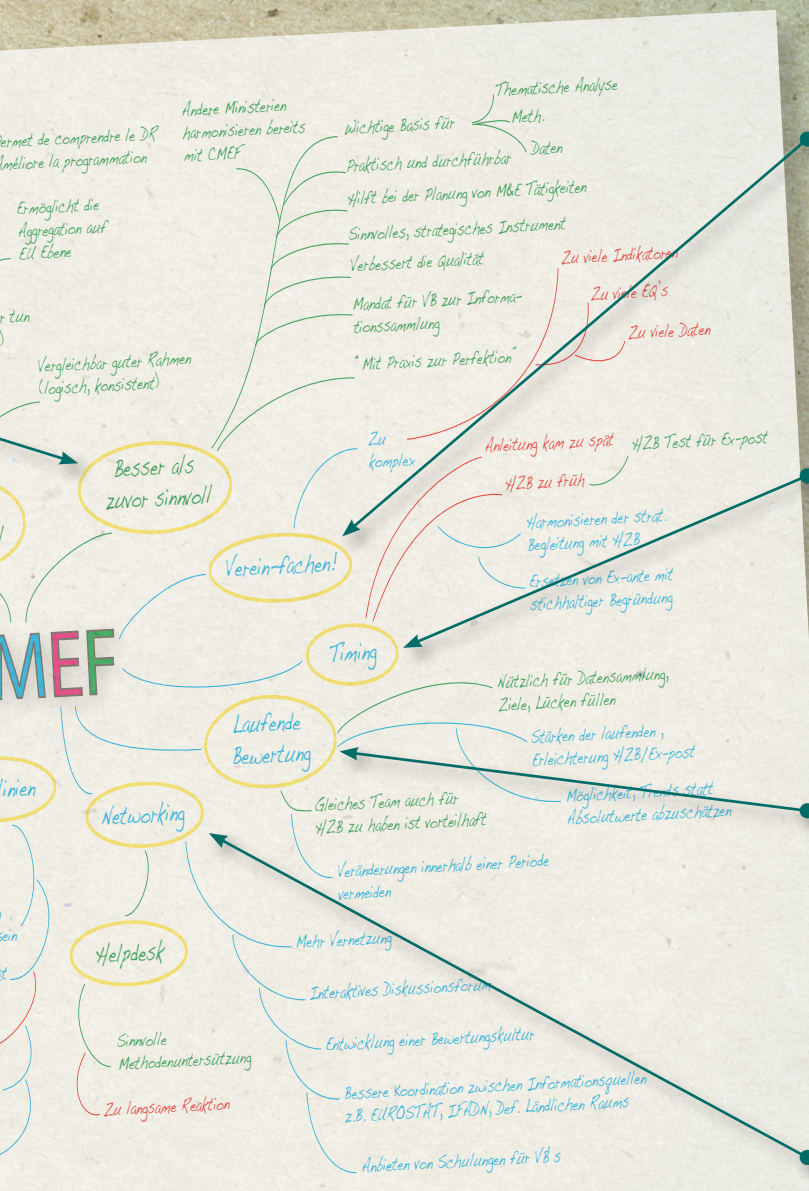 Permet de comprendre le DR
Améliore la programmation
Ermöglicht die
Aggregation auf
EU Ebene
r tun
)
Vergleichbar guter Rahmen
(logisch, konsistent)
Andere Ministerien
harmonisieren bereits
mit CMEF
Wichtige Basis für
Thematische Analyse
Meth.
Daten
Praktisch und durchführbar
Hilft bei der Planung von M&E Tätigkeiten
Sinnvolles, strategisches Instrument
Verbessert die Qualität
Mandat für VB zur Informa-
tionssammlung
"Mit Praxis zur Perfektion"
Besser als
zuvor sinnvoll
Zu viele Indikatoren
Zu viele EQ's
Zu viele Daten
Zu
komplex
Verein-fachen!
Anleitung kam zu spät
HZB zu früh
HZB Test für Ex-post
Harmonisieren der strat.
Begleitung mit HZB
Ersetzen von Ex-ante mit
stichhaltiger Begründung
Timing
MEF
Laufende
Bewertung
Nützlich für Datensammlung,
Ziele, Lücken füllen
Stärken der laufenden ,
Erleichterung HZB/Ex-post
Möglichkeit, Trends statt
Absolutwerte abzuschätzen
Gleiches Team auch für
HZB zu haben ist vorteilhaft
Veränderungen innerhalb einer Periode
vermeiden
linien
sein
Networking
Helpdesk
Sinnvolle
Methodenuntersützung
Zu langsame Reaktion
Mehr Vernetzung
Interaktives Diskussionsforum
Entwicklung einer Bewertungskultur
Bessere Koordination zwischen Informationsquellen
z.B. EUROSTAT, IFADN, Def. Ländlichen Raums
Anbieten von Schulungen für VB s